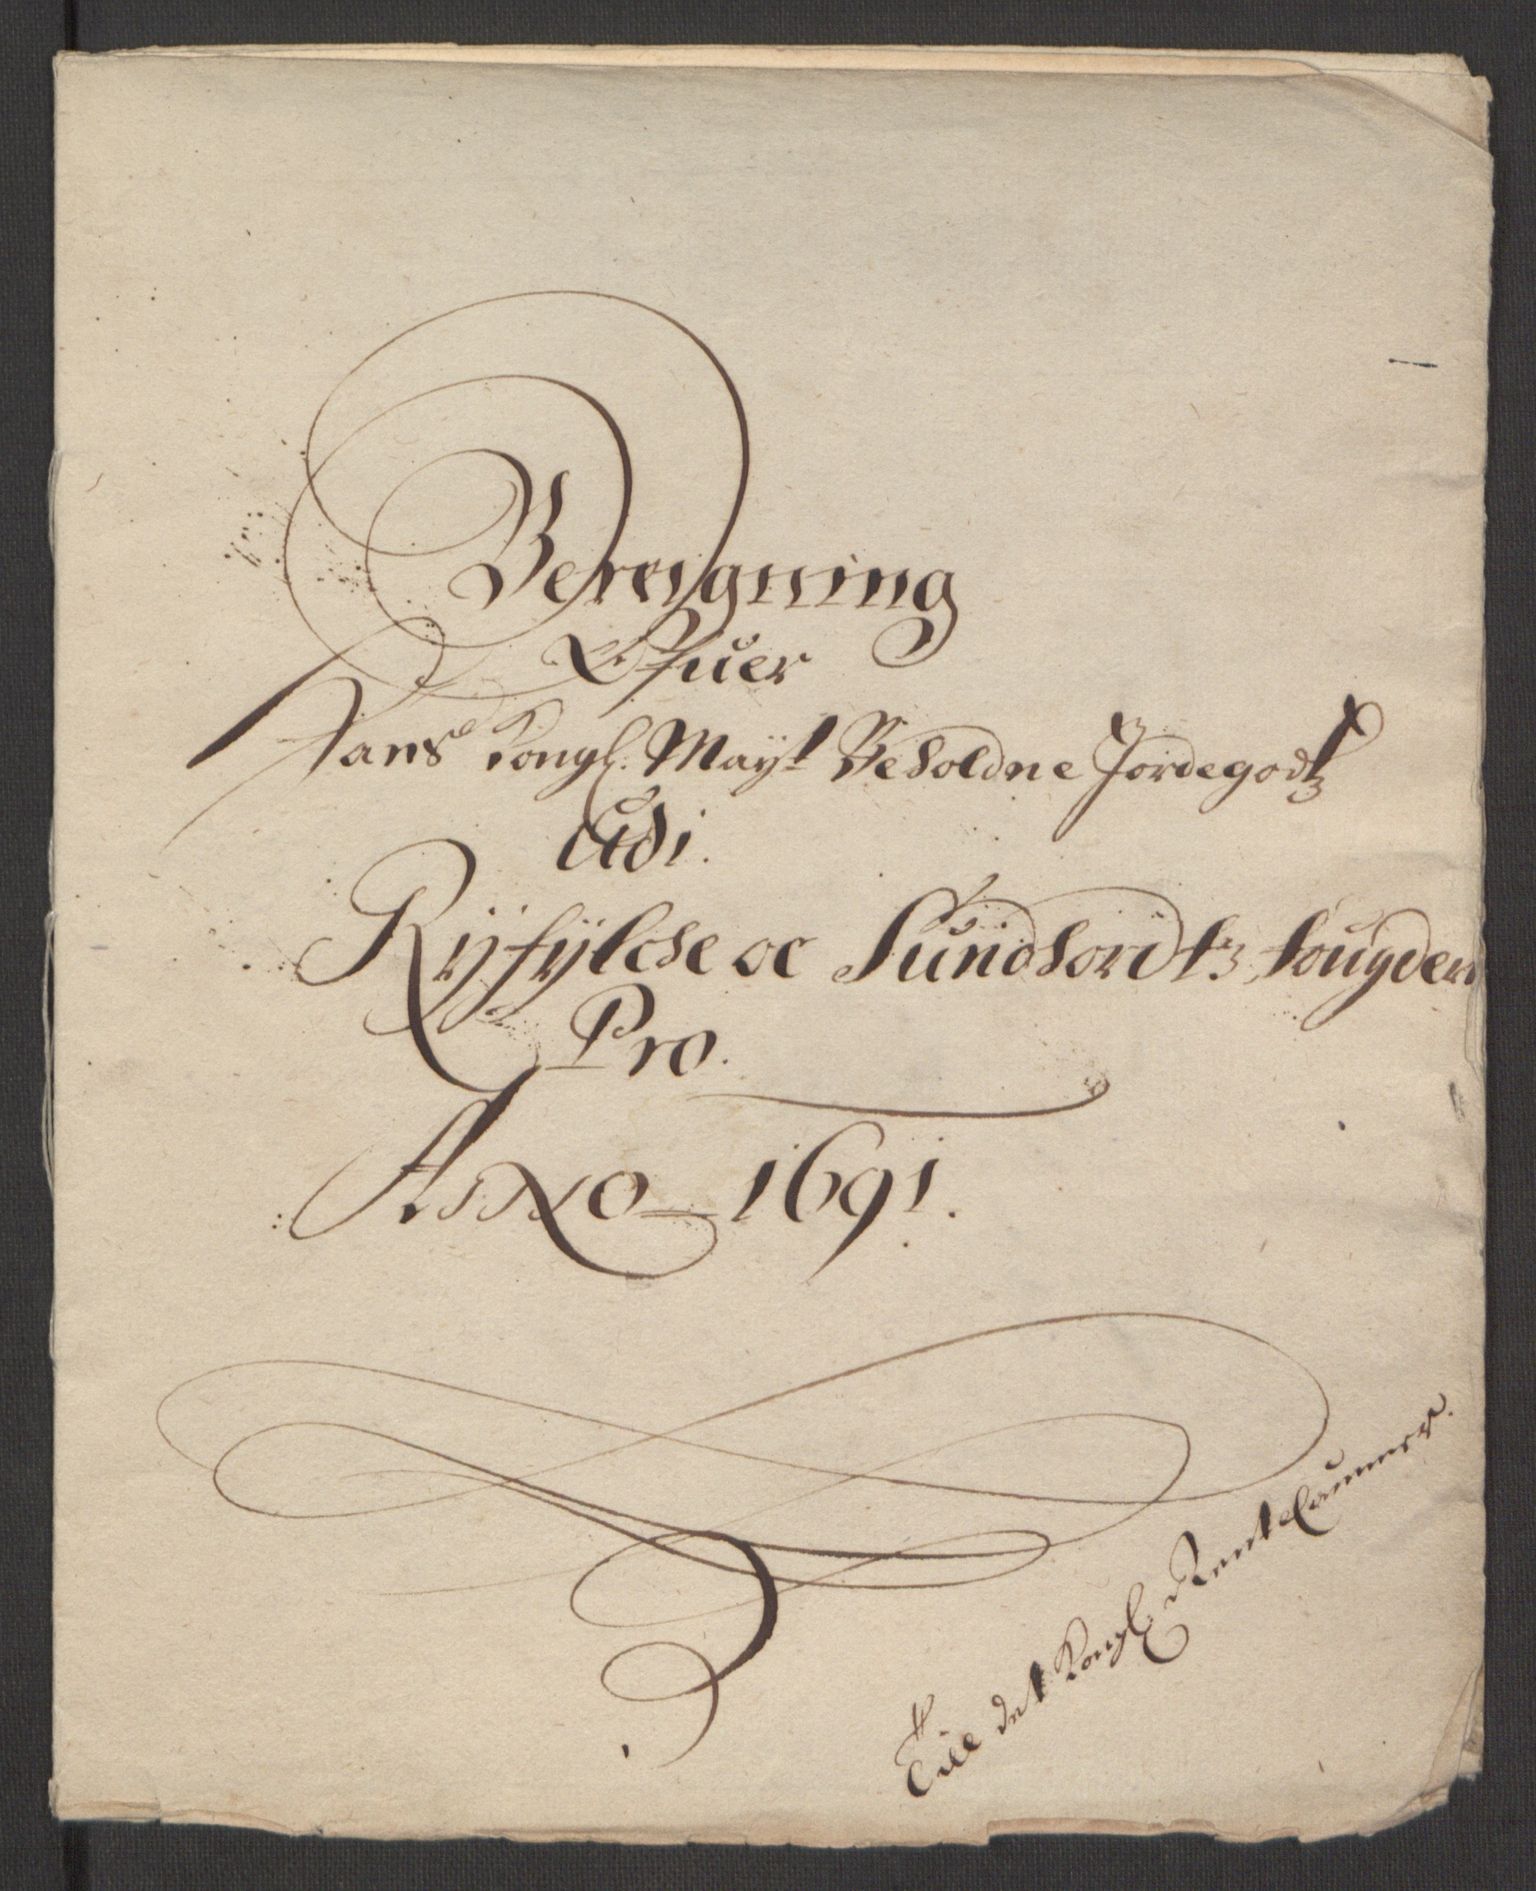 Beregning
Ofuer
Hans Kongl. Mayt Beholdne Jordegodtz
Udi.
Ryfylche oc Sundhordtz fougderi
Pro.
Anno 1691.
Till det Kongl Rente Cammer.